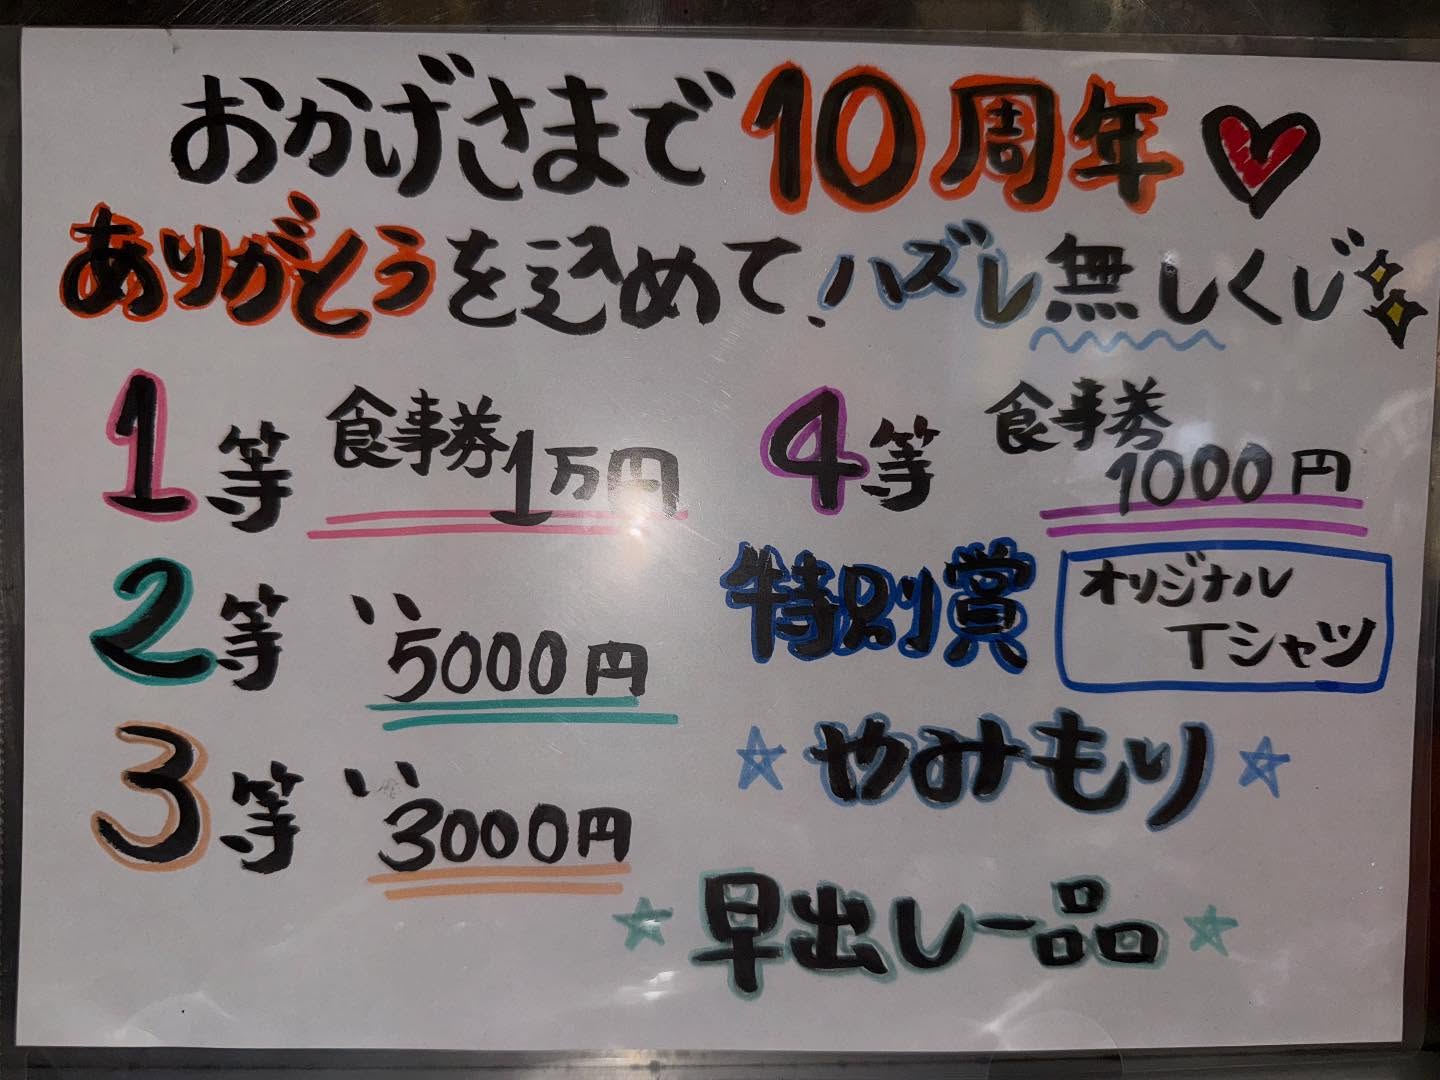 おかげさまで10周年
ありがとうを込めて、ハズレ無しくじ
1等 食事券1万円
2等 〃 5000円
3等 〃 3000円
4等 食事券1000円
特別賞 オリジナル
Tシャツ
☆やみもり☆
☆早出し一品☆